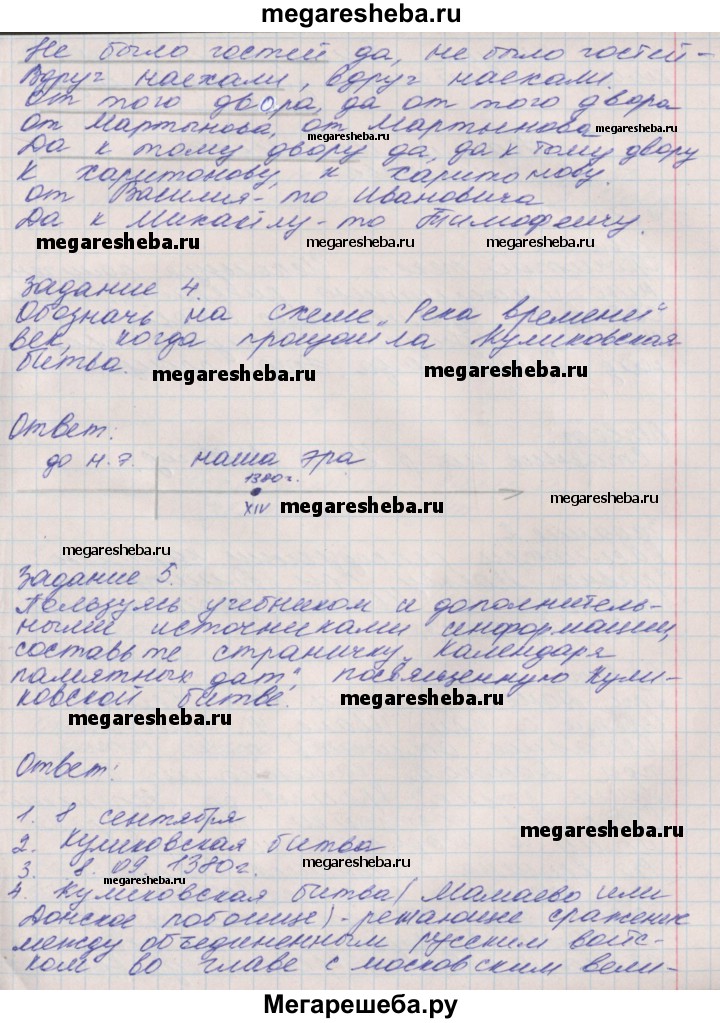 megaresheba.ru
Не было гостей да, не было гостей-
Вдруг наехали, вдруг наехали.
От того двора, да от того двора
От Мартынова, от Мартынова
megaresheba.ru
Да к тому двору да, да к тому двору
К харитонову, к харитонову.
от Василия-то Ивановича
Да к Михайлу-то Тимофеичу.
megaresheba.ru megaresheba.ru megaresheba.ru
Задание 4.
Обозначь на схеме „Река времени"
век, когда произошла Куликовская
битва.
megaresheba.ru megaresheba.ru
Ответ:
до н.э. наша эра
1380г.
XIV megaresheba.ru megaresheba.ru
megaresheba.ru
Задание 5.
Пользуясь учебником и дополнитель-
ными источниками информации,
составьте страничку „Календаря
памятных дат", посвященную Кули-
ковской битве.
megaresheba.ru megaresheba.ru
Ответ:
1. 8 сентября
megaresheba.ru megaresheba.ru
2. Куликовская битва
3. 8.09 1380г. megaresheba.ru
megaresheba.ru
4. Куликовская битва (Мамаево или
Донское побоище) - решающие сражение
между объединенным русским войс-
ком во главе с московским вели-
Мегарешеба.ру